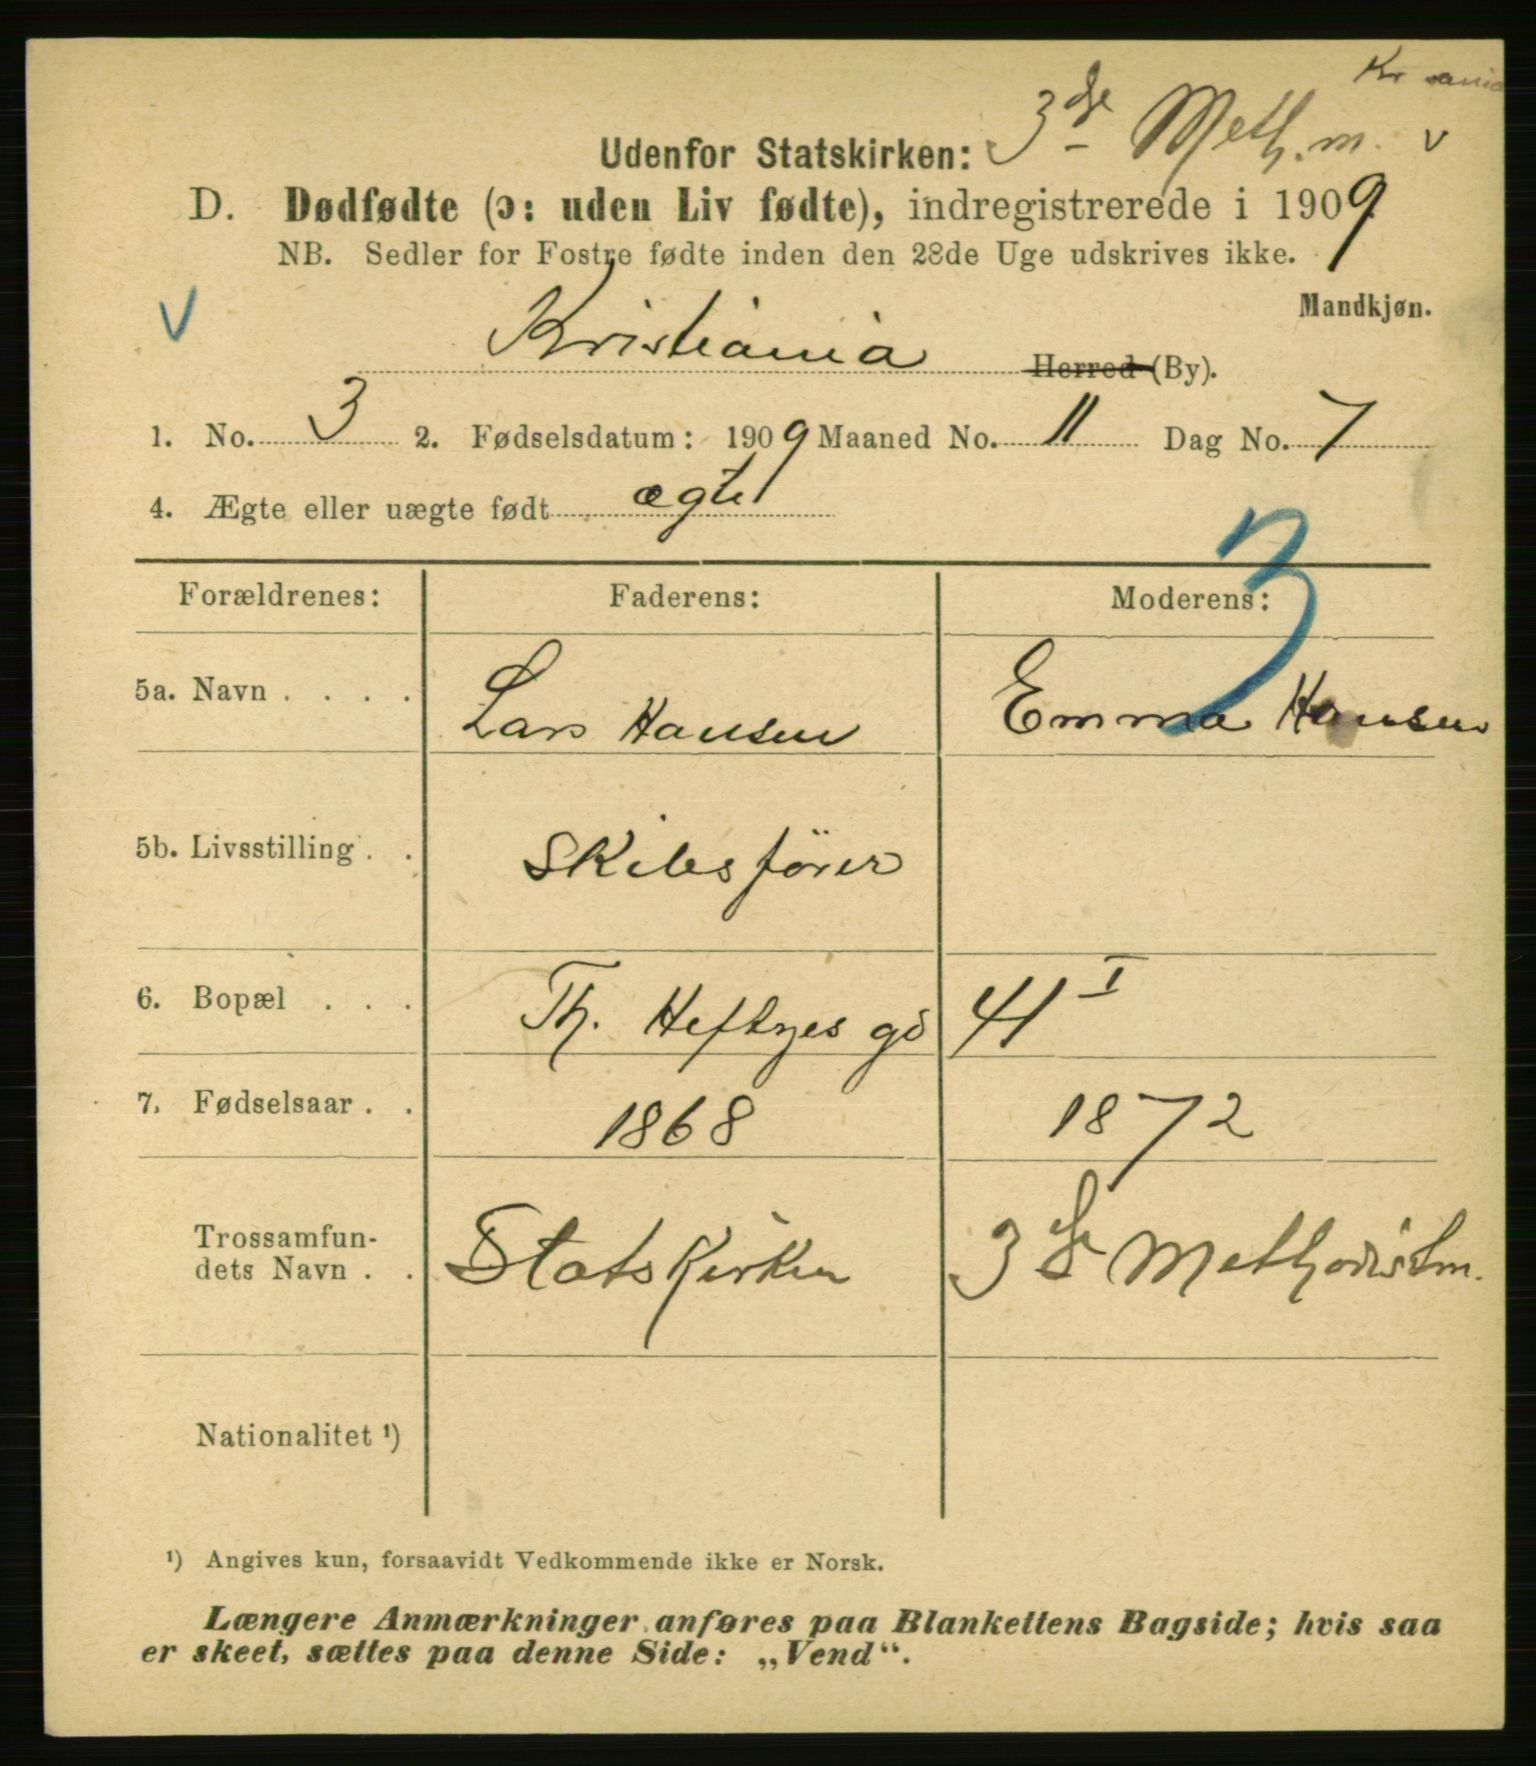 Kr ania
Udenfor Statskirken: 3dje Meth. m. v
D. Dødfødte (ɔ: uden Liv fødte), indregistrerede i 1909
NB. Sedler for Fostre fødte inden den 28de Uge udskrives ikke.
Mandkjøn.
V
Kristiania Herred (By).
1. No. 3 2. Fødselsdatum: 1909 Maaned No. 11 Dag No. 7
4. Ægte eller uægte født ægte
3
Forældrenes: Faderens: Moderens:
5a. Navn . . . . Lars Hansen Emma Hansen
5b. Livsstilling . . Skibsfører
6. Bopæl . . . Th. Heftyes gd 41 I
7. Fødselsaar . . 1868 1872
Trossamfun-
dets Navn . . Statskirken 3dje Methodistm.
Nationalitet ¹)
¹) Angives kun, forsaavidt Vedkommende ikke er Norsk.
Længere Anmærkninger anføres paa Blankettens Bagside; hvis saa
er skeet, sættes paa denne Side: „Vend“.